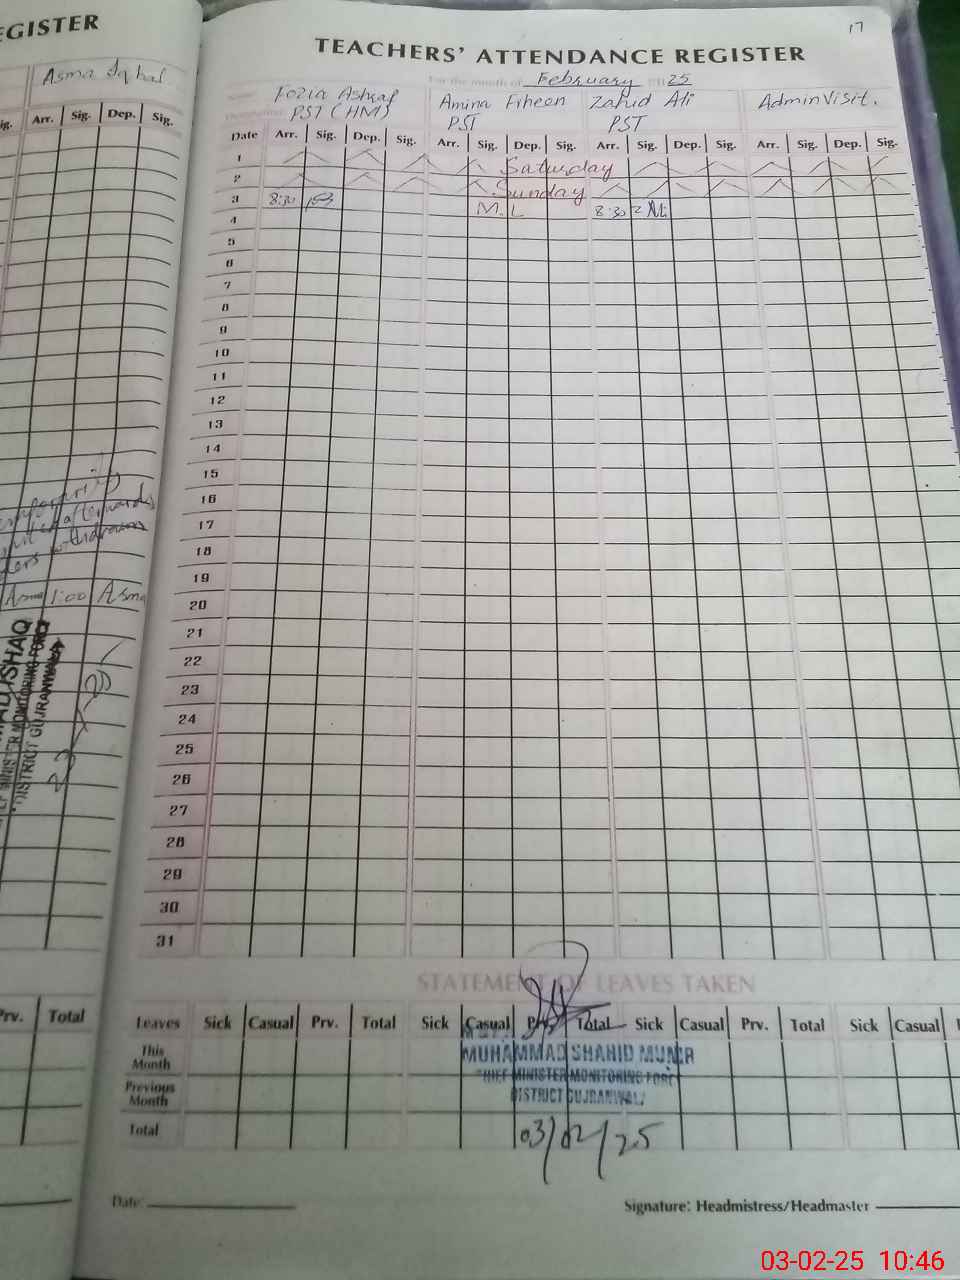 EGISTER
Asma Iqbal
ig. Arr. Sig. Dep. Sig.
afterwards
withdrawn
Asma 1:00 Asma
ISHAQ
MINISTER MONITORING FORCE
DISTRICT GUJRANWALA
Prv. Total
17
TEACHERS' ATTENDANCE REGISTER
For the month of February 25
Fozia Ashraf Amina Zahid Ali Admin Visit.
PST (HM) PST PST
Date Arr. Sig. Dep. Sig. Arr. Sig. Dep. Sig. Arr. Sig. Dep. Sig. Arr. Sig. Dep. Sig.
1 Saturday
2 Sunday
3 8:30 M.L 8:30 Z Ali
4
5
6
7
8
9
10
11
12
13
14
15
16
17
18
19
20
21
22
23
24
25
26
27
28
29
30
31
STATEMENT OF LEAVES TAKEN
Leaves Sick Casual Prv. Total Sick Casual Prv. Total Sick Casual Prv. Total Sick Casual
This Month
Previous Month
Total
MUHAMMAD SHAHID MUNIR
CHIEF MINISTER MONITORING FORCE
DISTRICT GUJRANWALA
03/02/25
Date: Signature: Headmistress/Headmaster
03-02-25 10:46